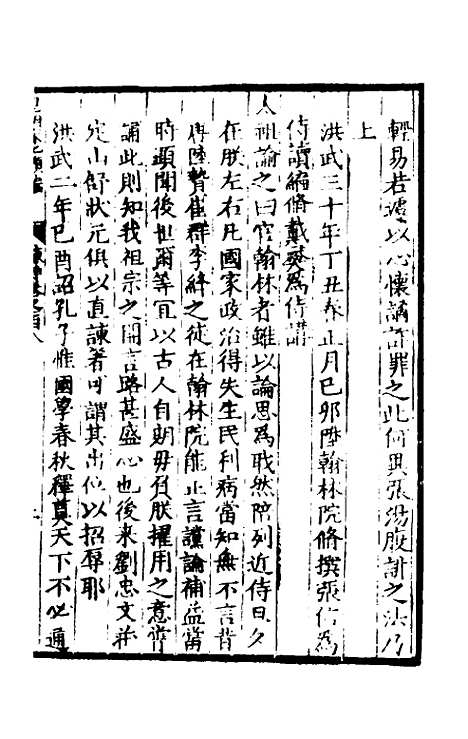 輕易若遽以心懷謫詐罪之此何異張湯腹誹之法乃
上
洪武三十年丁丑春正月己卯陞翰林院脩撰張信為
侍讀編脩戴彝為侍講
太祖諭之曰官翰林者雖以論思為職然陪列近侍日久
在朕左右凡國家政治得失生民利病當知無不言昔
唐陸贄崔群李絳之徒在翰林院能正言讜論補益當
時顯聞後世爾等宜以古人自期毋負朕擢用之意嘗
誦此則知我祖宗之開言路甚盛心也後來劉忠文并
定山舒狀元俱以直諫著可謂其出位以招辱耶
洪武二年己酉詔孔子惟國學春秋釋奠天下不必通